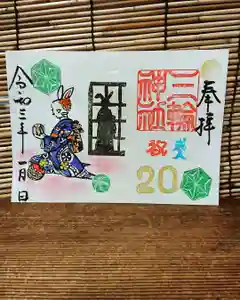 奉拝
三輪
神社
祝
20
令和三年 一月 日